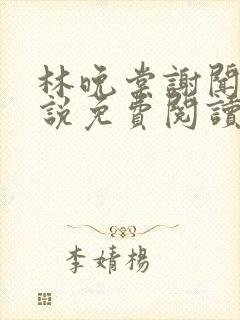 林晚棠謝聞
說免費閱讀
李婧楊